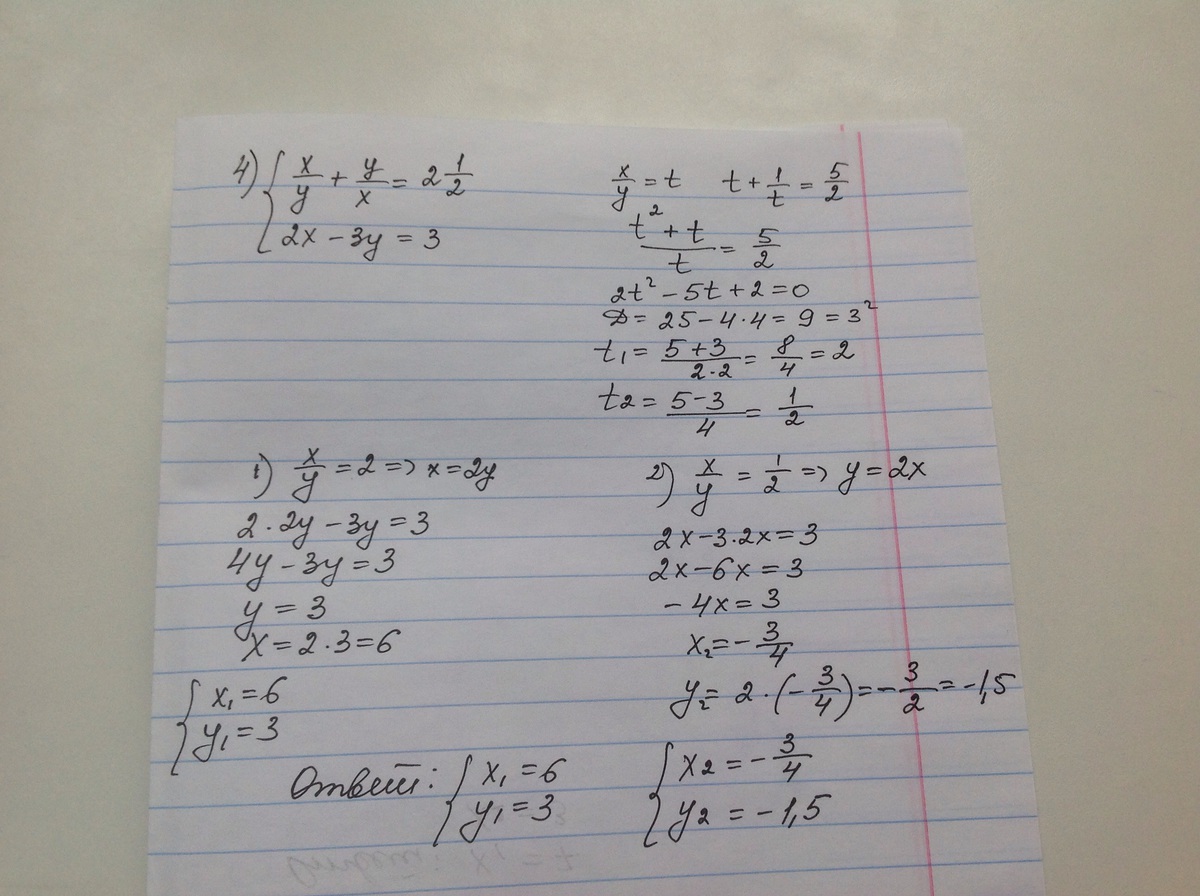 4) { x/y + y/x = 2 1/2
2x - 3y = 3
x/y = t   t + 1/t = 5/2
(t² + t)/t = 5/2
2t² - 5t + 2 = 0
D = 25 - 4·4 = 9 = 3²
t₁ = (5+3)/(2·2) = 8/4 = 2
t2 = (5-3)/4 = 1/2
1) x/y = 2 => x = 2y
2·2y - 3y = 3
4y - 3y = 3
y = 3
x = 2·3 = 6
{ x₁ = 6
y₁ = 3
2) x/y = 1/2 => y = 2x
2x - 3·2x = 3
2x - 6x = 3
- 4x = 3
x₂ = - 3/4
y₂ = 2·(- 3/4) = - 3/2 = -1,5
Ответ: { x₁ = 6
y₁ = 3
{ x2 = - 3/4
y2 = -1,5